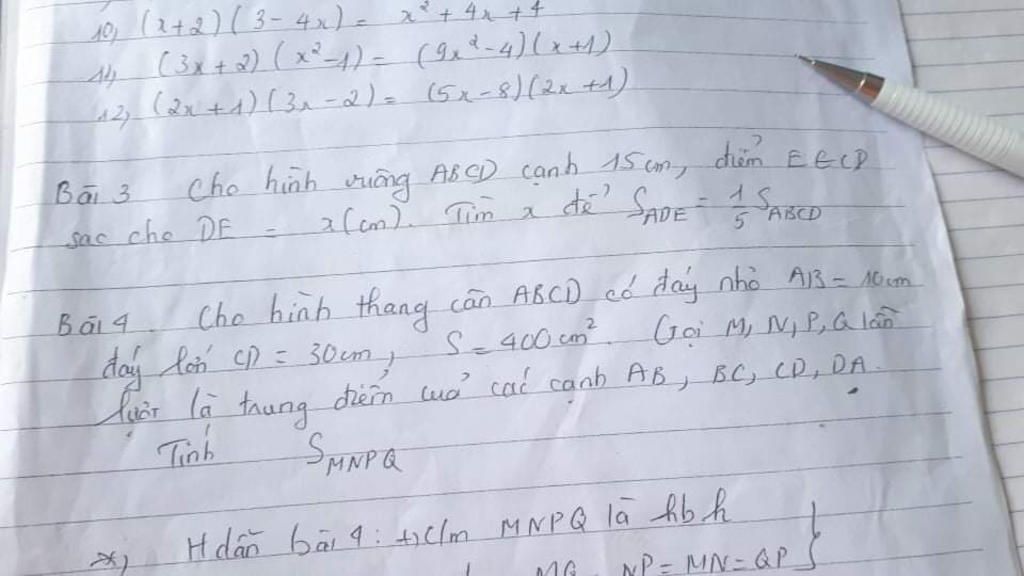 10, (x+2)(3-4x) = x² + 4x + 4
11, (3x+2)(x²-1) = (9x²-4)(x+1)
12, (2x+1)(3x-2) = (5x-8)(2x+1)
Bài 3 Cho hình vuông ABCD cạnh 15cm, điểm E ∈ CD
sao cho DE = x(cm). Tìm x để S_ADE = 1/5 S_ABCD
Bài 4. Cho hình thang cân ABCD có đáy nhỏ AB = 10cm
đáy lớn CD = 30cm, S = 400cm². Gọi M, N, P, Q lần
lượt là trung điểm của các cạnh AB, BC, CD, DA.
Tính S_MNPQ
*, H dẫn bài 4: +, C/m MNPQ là hbh
MQ NP = MN = QP }